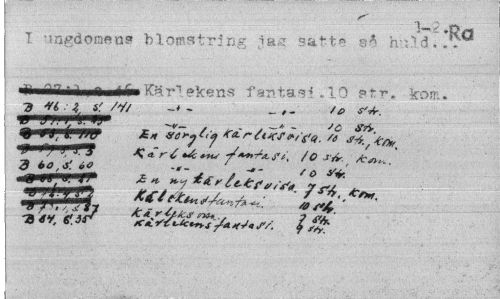 1-2. Ra
I ungdomens blomstring jag satte så huld...
Kärlekens fantasi.10 str. kom.
B 46:2, s. 141 -"- -"- 10 str.
-"- -"- 10 str.
En sorglig kärleksvisa. 10 str., kom.
Kärlekens fantasi. 10 str., kom.
B 60, s. 60 -"- -"- 10 str.
En ny kärleksvisa. 9 str., kom.
Kälekens fantasi. 10 str.
Kärleksom. 9 str.
B 84, s. 35 Kärlekens fantasi. 9 str.